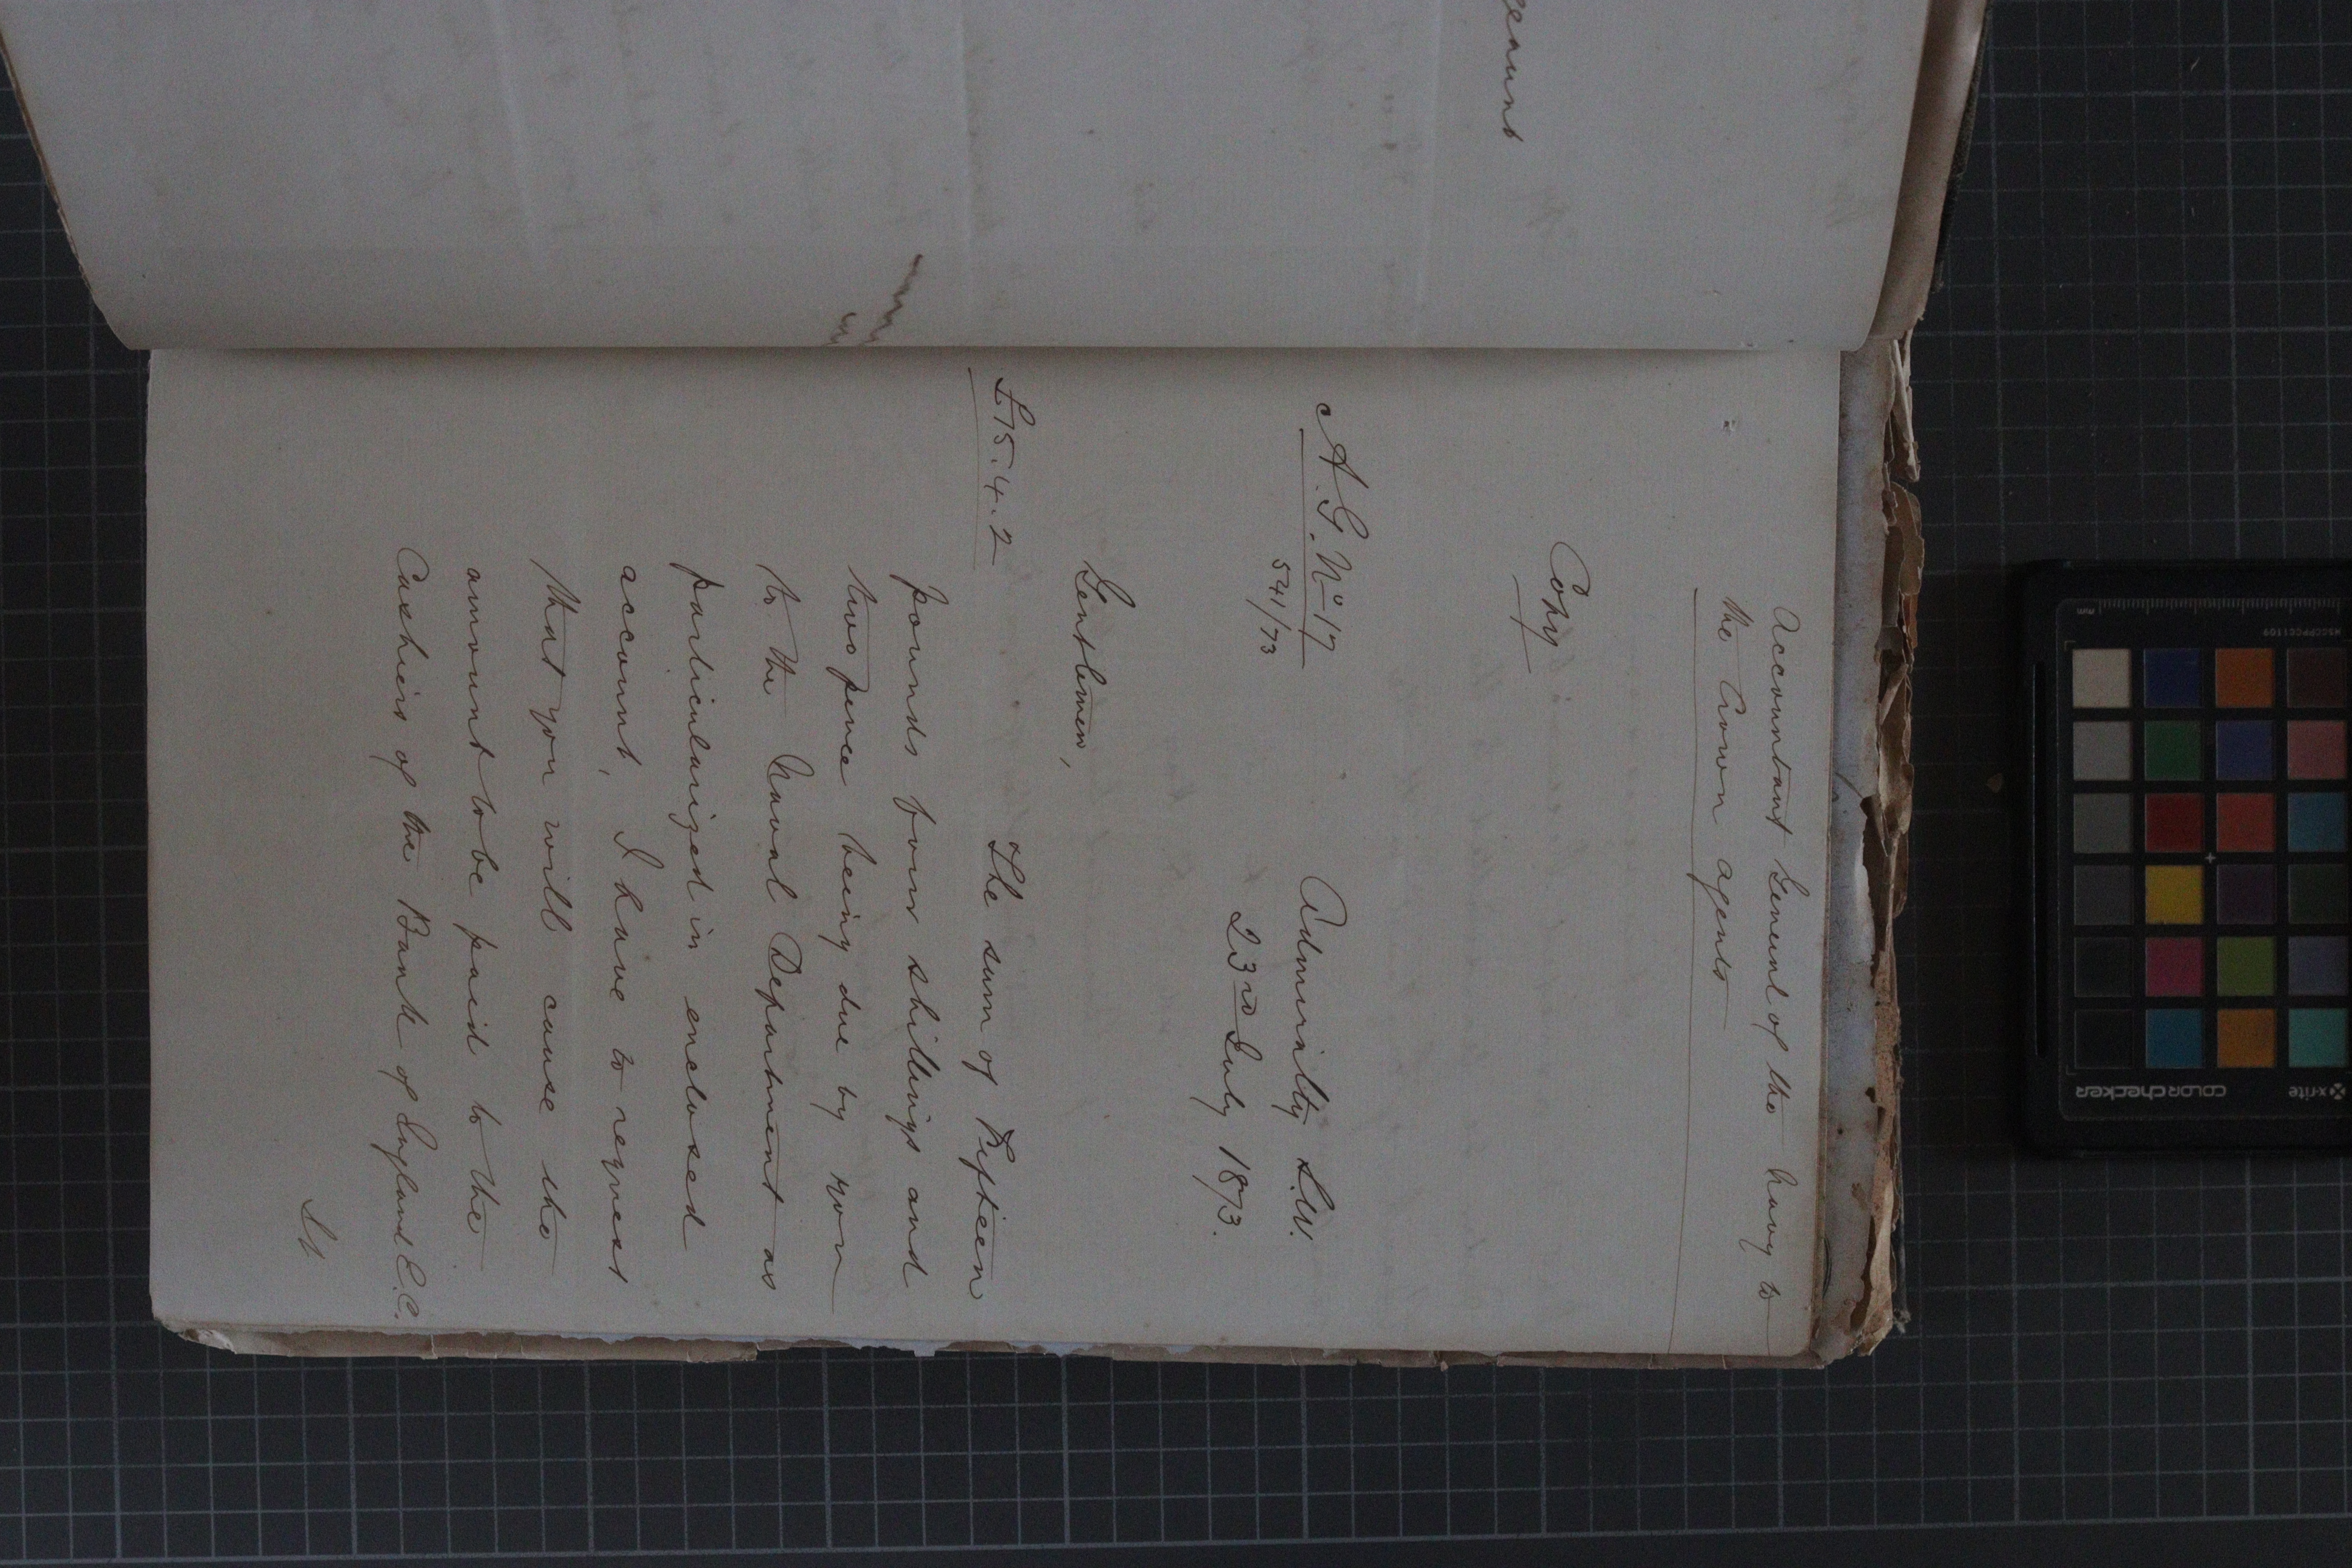 Accountant General of the Navy to
the Crown agents
Copy
A.G. No 17
541/73
Admiralty S.W.
23rd July 1873.
Gentlemen,
£15.4.2
The sum of Fifteen
pounds four shillings and
two pence being due by you
to the Naval Department as
particularized in enclosed
account, I have to request
that you will cause the
amount to be paid to the
Cashiers of the Bank of England E.C.
x-rite
colorchecker
mm